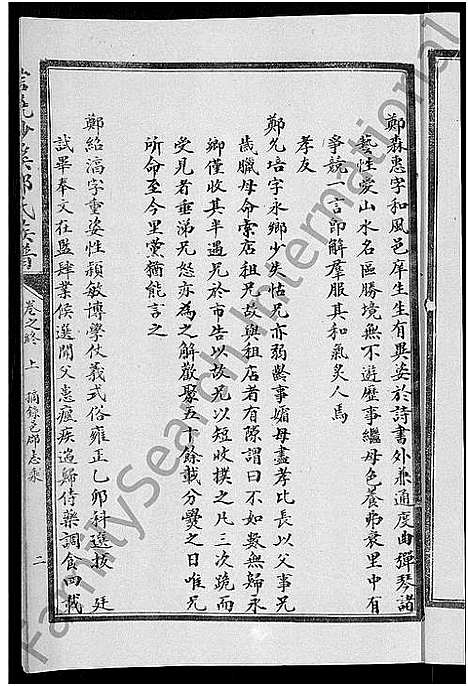 鄭森惠字和風邑庠生生有異姿於詩書外兼通度曲彈琴諸
藝性愛山水名區勝境無不遊歷事繼母色養弗衰里中有
爭競一言即解羣服其和氣炙人焉
孝友
鄭允培字永鄉少失怙兄亦弱齡事孀母盡孝比長以父事兄
嵗臘母命索店租兄故與租店者有隙謂曰不如數無歸永
鄉僅收其半遇兄於市告以故兄以短收撲之凡三次跪而
受見者垂涕兄怒亦為之解歡聚五十餘載分爨之日唯兄
所命至今里黨猶能言之
鄭紹濂字重姿性穎敏博學仗義式俗雍正乙卯科選拔 廷
試畢奉文在監肄業候選聞父患瘧疾遄歸侍藥調食四載
鄭氏族譜
卷之終 上 摘錄邑郡志乘
二
FamilySearch International